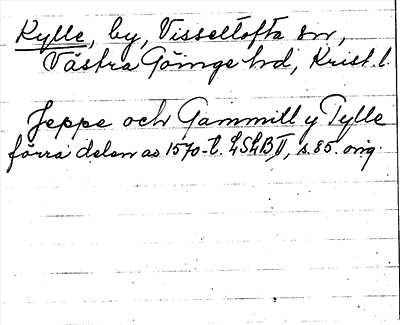 Kylle, by, Visseltofta sn,
Västra Göinge hd, Krist. l.
Jeppe och Gammill y Tylle
förra delen av 1570-t. LSLB II, s. 85. orig.